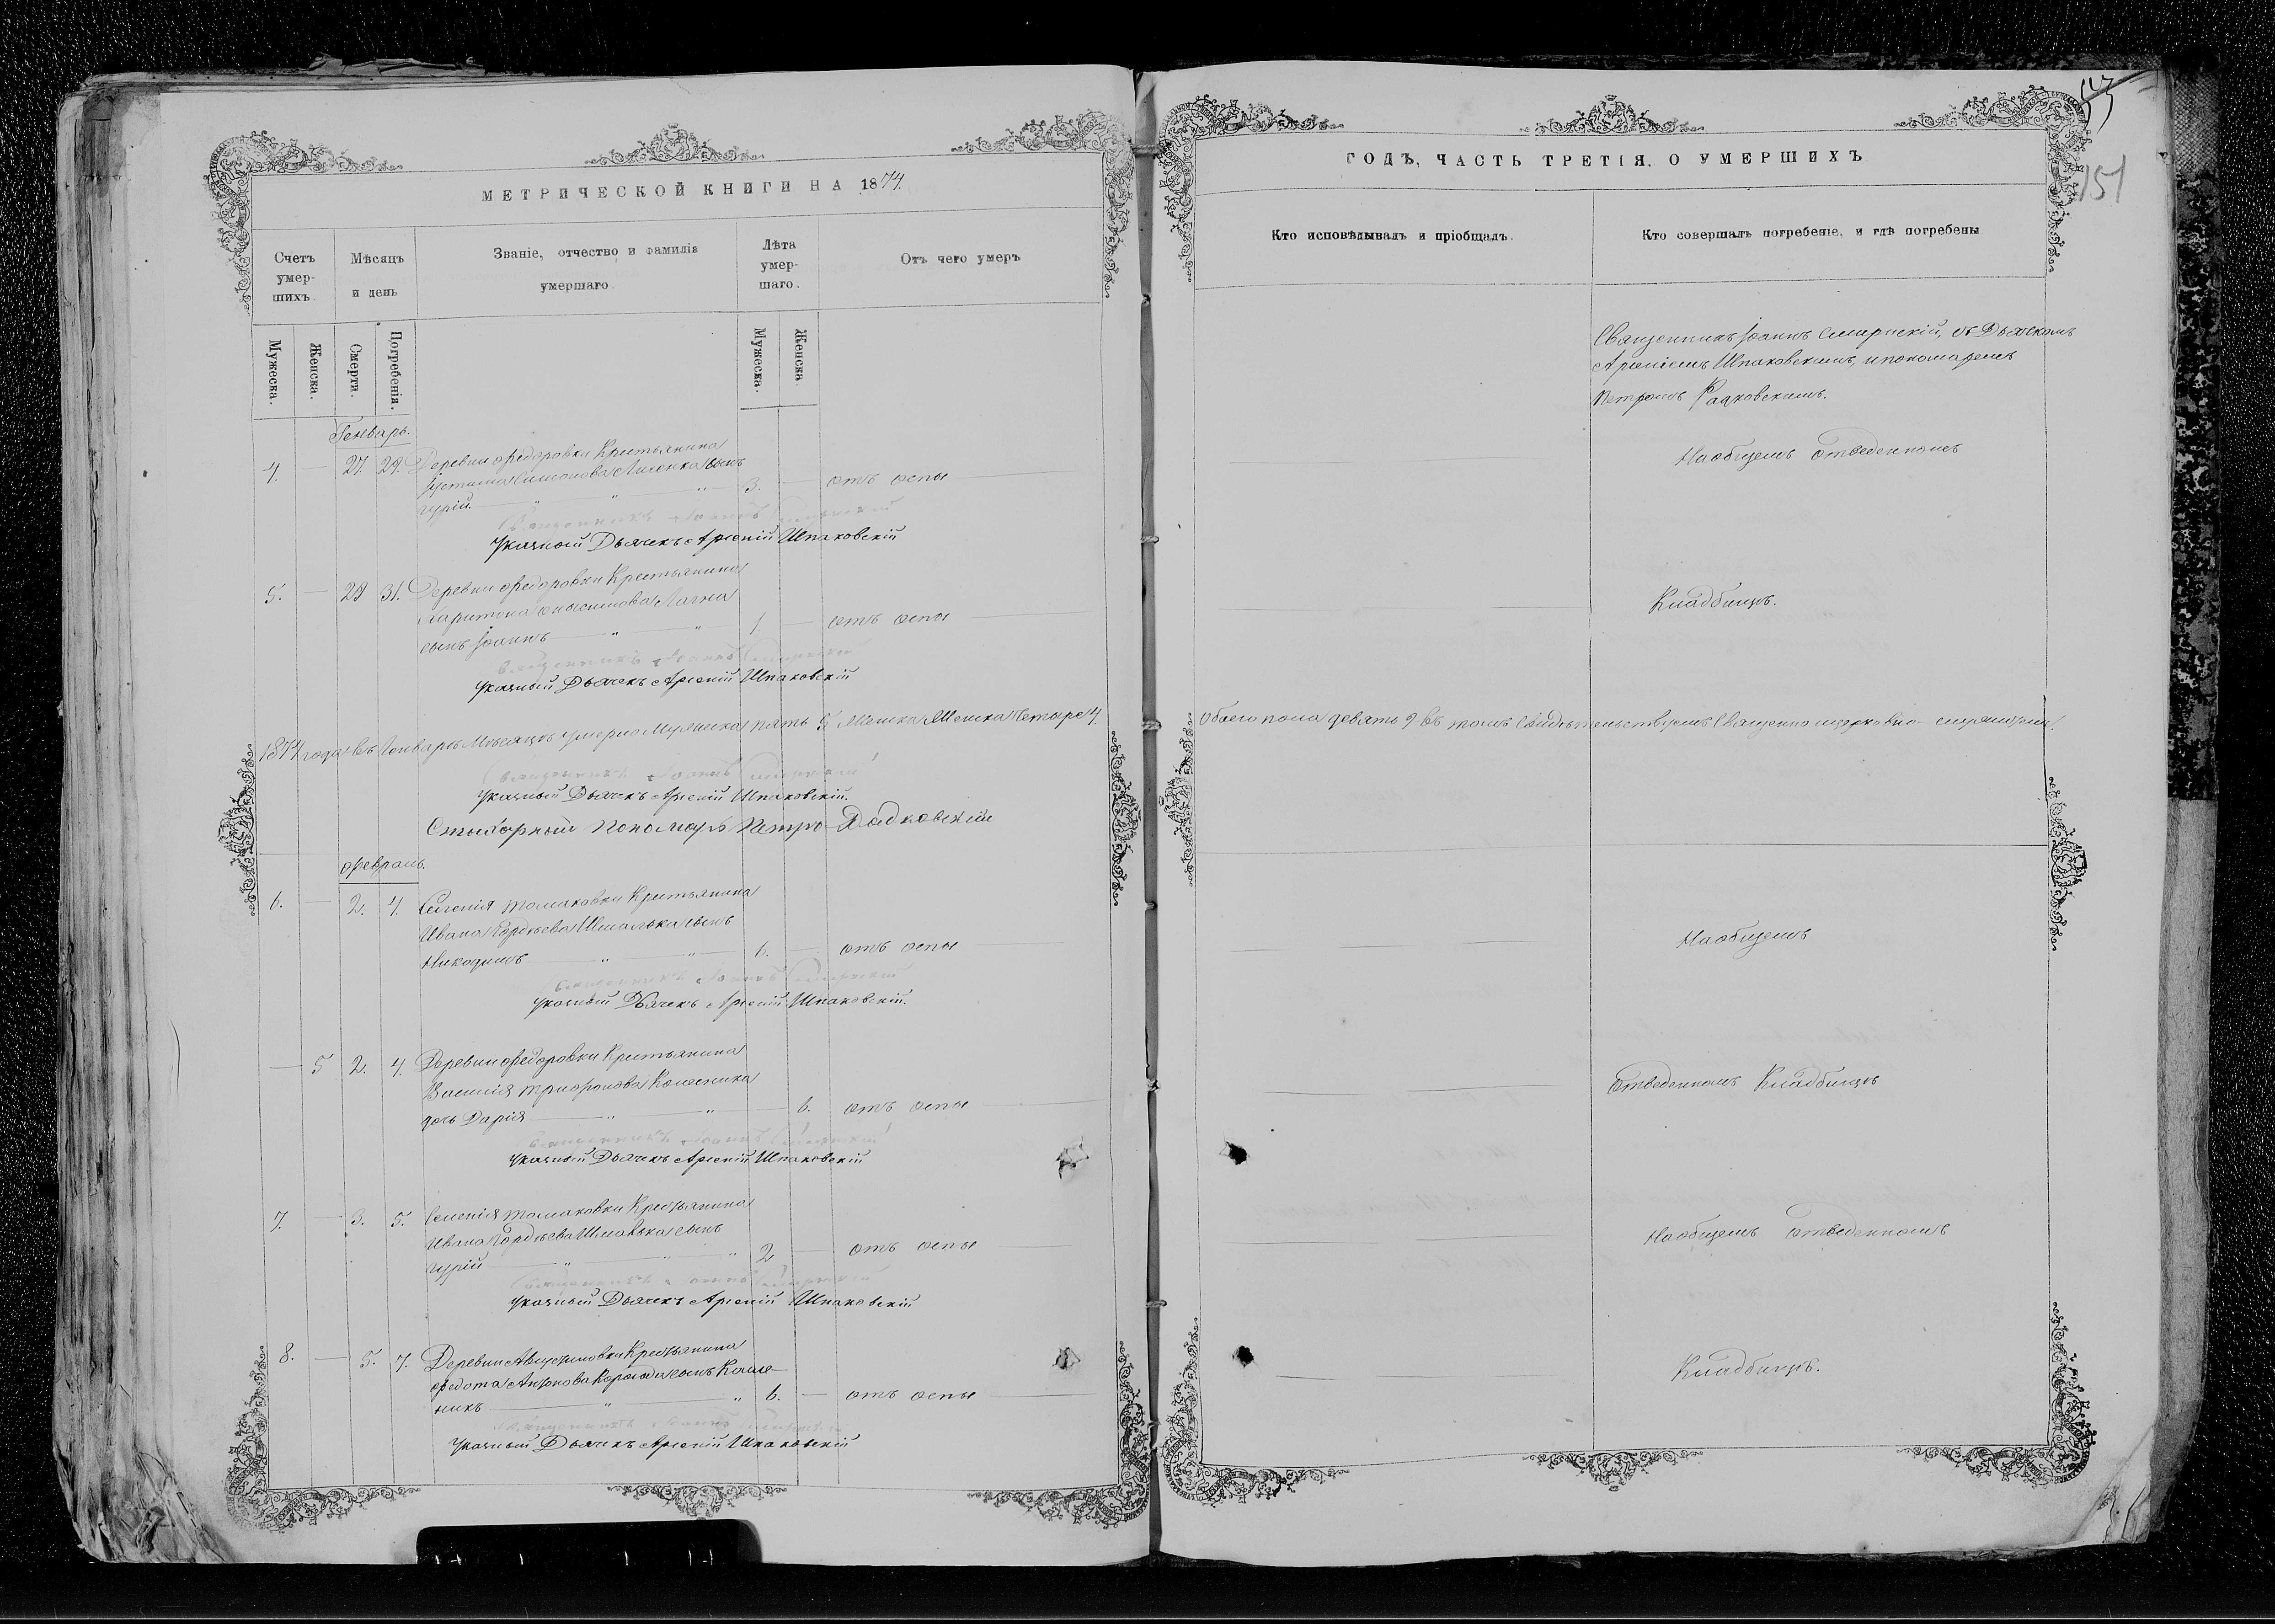 МЕТРИЧЕСКОЙ КНИГИ НА 1874.
Счетъ умер-шихъ.
Мѣсяцъ и день
Званіе, отчество и фамилія умершаго.
Лѣта умер-шаго.
Отъ чего умеръ
Мужеска.
Женска.
Смерти.
Погребенія.
Мужеска.
Женска.
Генварь.
4. — 27. 29. Деревни Федоровки Крестьянина
Устина Симонова сынъ
Гурій 3. — отъ оспы
Священникъ Іоаннъ
Указный Дьячекъ Арсеній Шпаковскій
5. — 29 31. Деревни Федоровки Крестьянина
Харитона
сынъ Іоаннъ 1. — отъ оспы
Священникъ Іоаннъ
Указный Дьячекъ Арсеній Шпаковскій
1874 года въ Генварѣ Мѣсяцѣ умерло Мужеска пять 5 Женска четыре 4.
Священникъ Іоаннъ
Указный Дьячекъ Арсеній Шпаковскій.
Стихарный Пономарь Петръ
Февраль.
6. — 2. 4. Селенія Томаковки Крестьянина
Ивана Гордѣева сынъ
Никодимъ 6. — отъ оспы
Священникъ Іоаннъ
Указный Дьячекъ Арсеній Шпаковскій.
— 5 2. 4. Деревни Федоровки Крестьянина
Василія Трифонова Колесника
дочь Дарія — 6. отъ оспы
Священникъ Іоаннъ
Указный Дьячекъ Арсеній Шпаковскій
7. — 3. 5. Селенія Томаковки Крестьянина
Ивана Гордѣева сынъ
Гурій 2 — отъ оспы
Священникъ Іоаннъ
Указный Дьячекъ Арсеній Шпаковскій
8. — 5. 7. Деревни Крестьянина
Федота Антонова сынъ Калле-
никъ 6. — отъ оспы
Священникъ Іоаннъ
Указный Дьячекъ Арсеній Шпаковскій
151
ГОДЪ, ЧАСТЬ ТРЕТІЯ, О УМЕРШИХЪ
Кто исповѣдывалъ и пріобщалъ.
Кто совершалъ погребеніе, и гдѣ погребены
Священникъ Іоаннъ съ Дьячкомъ
Арсеніемъ Шпаковскимъ, и пономаремъ
Петромъ
На общемъ отведенномъ
Кладбищѣ.
Обоего пола девять 9 въ томъ свидѣтельствуемъ
На общемъ
отведенномъ Кладбищѣ
На общемъ отведенномъ
Кладбищѣ.